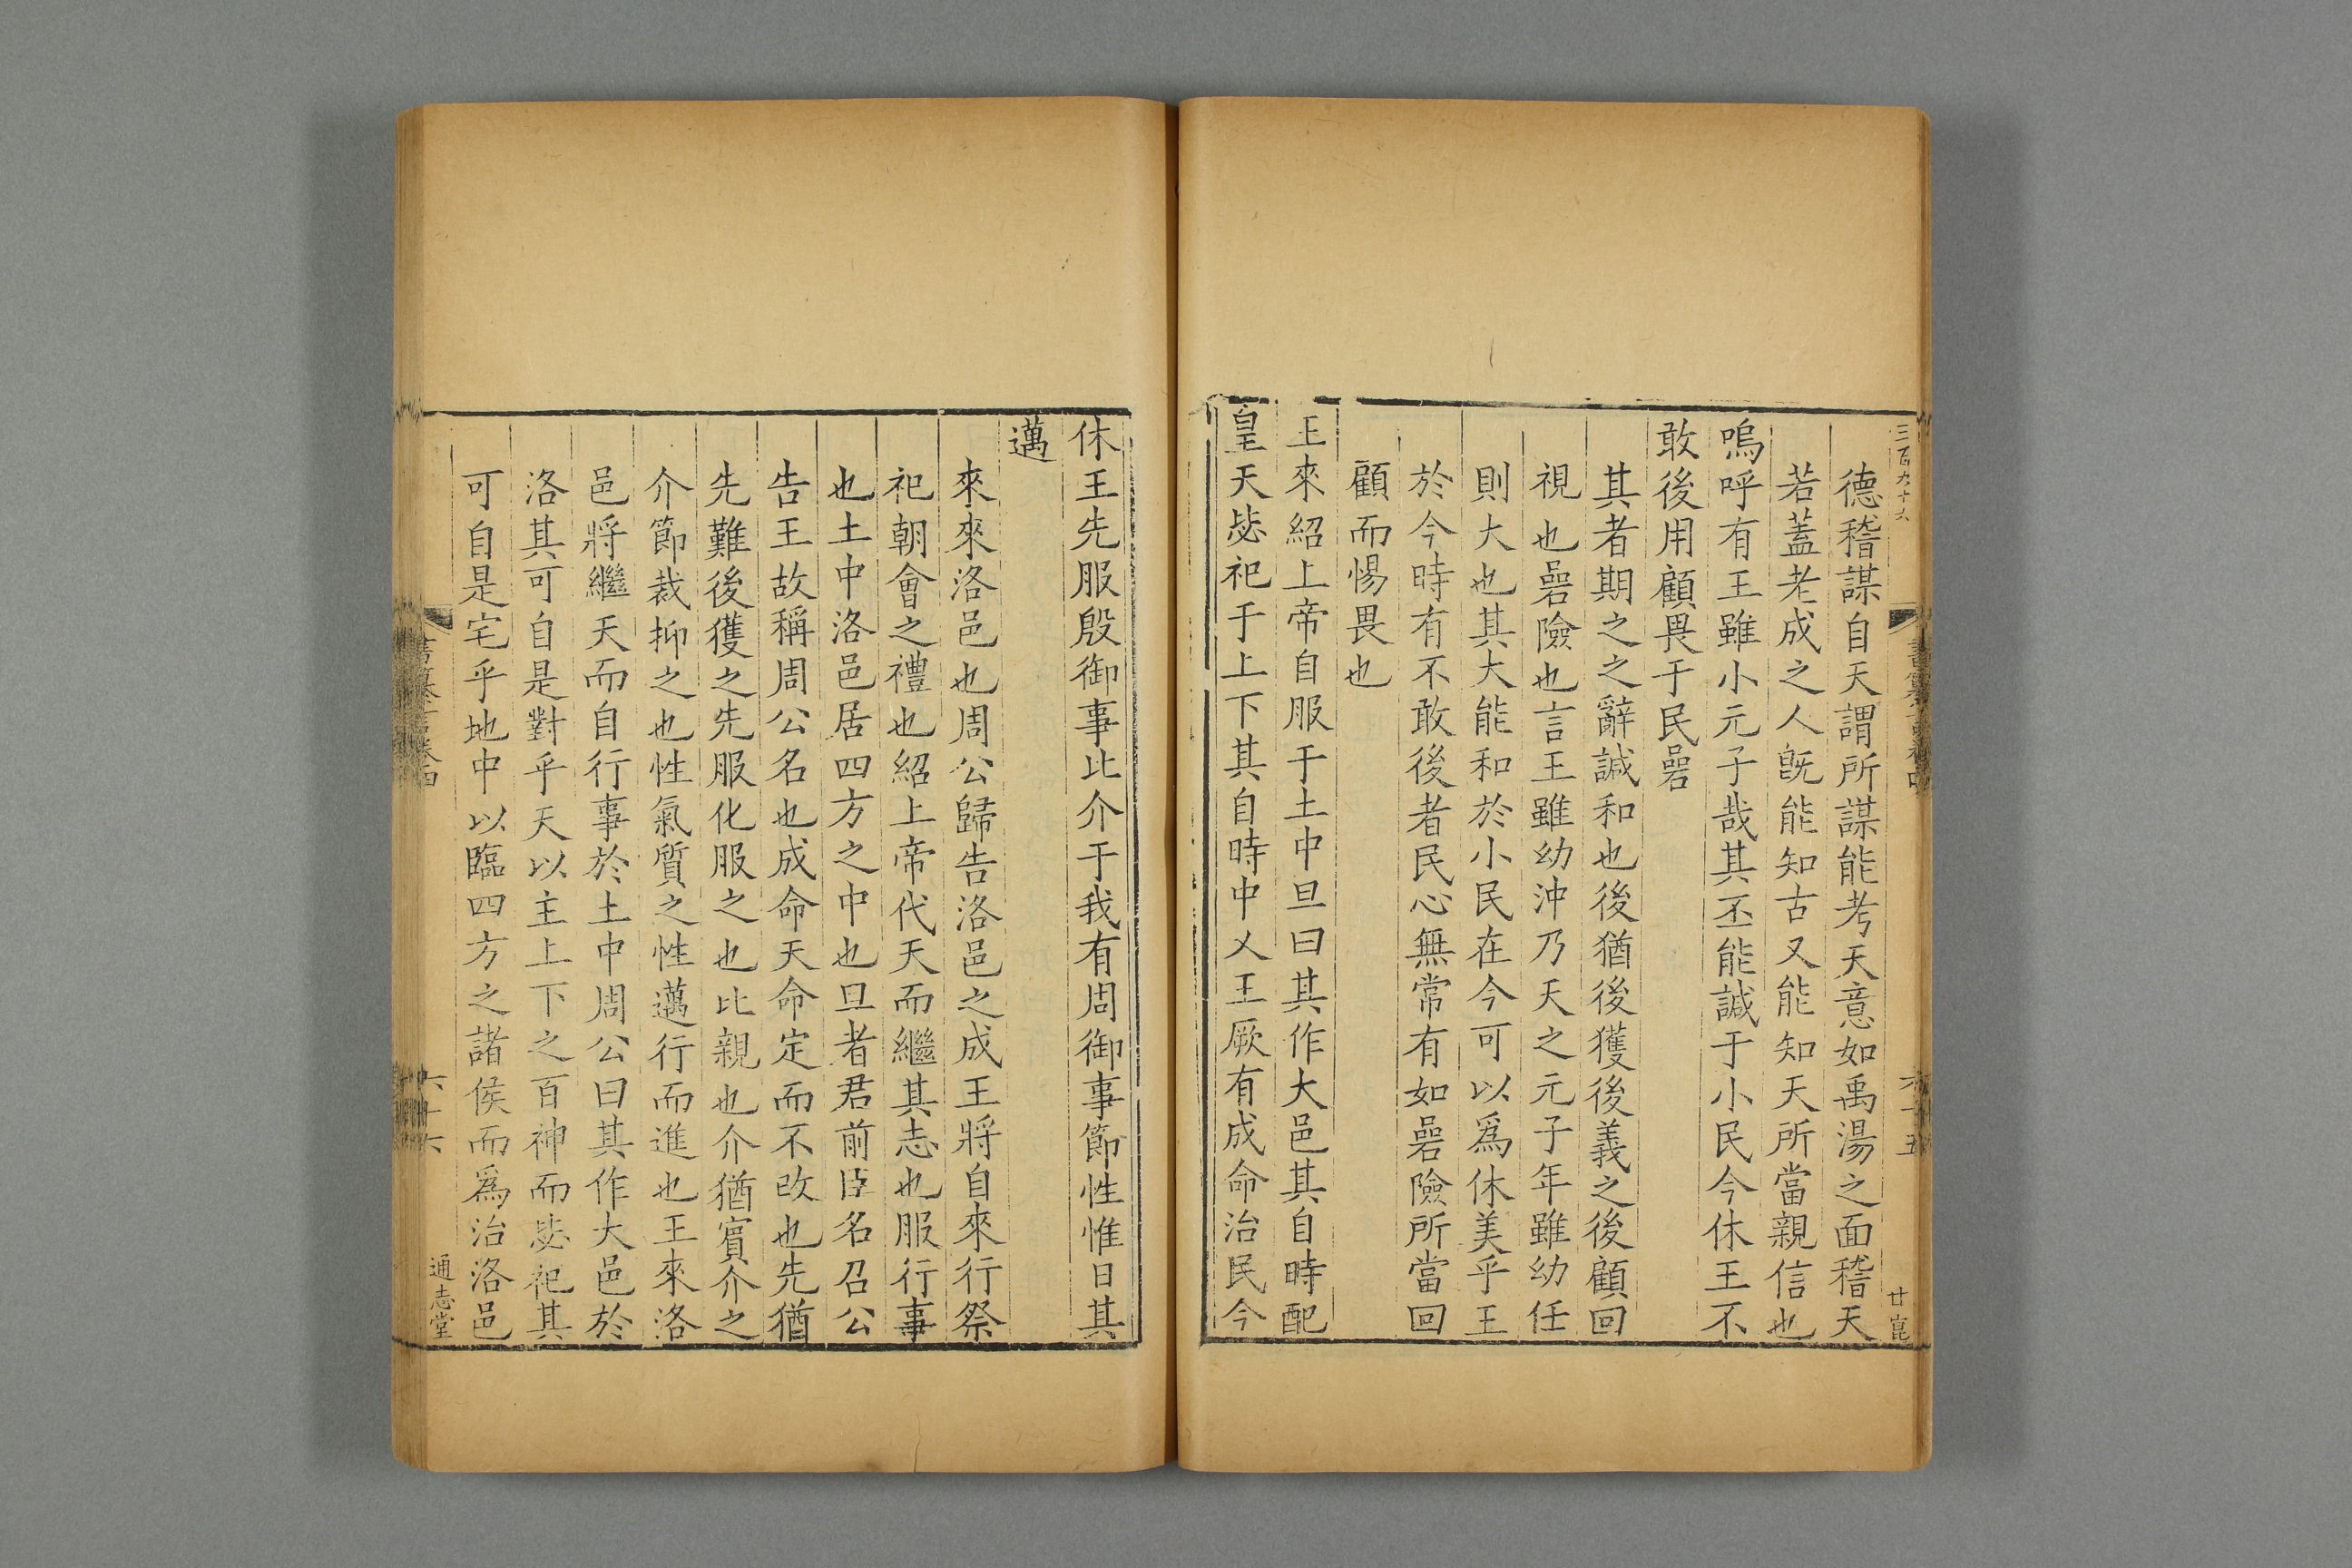 三百九十六
德稽謀自天謂所謀能考天意如禹湯之面稽天
若蓋老成之人旣能知古又能知天所當親信也
嗚呼有王雖小元子哉其丕能諴于小民今休王不
敢後用顧畏于民碞
其者期之之辭諴和也後猶後獲後義之後顧回
視也碞險也言王雖幼沖乃天之元子年雖幼任
則大也其大能和於小民在今可以爲休美乎王
於今時有不敢後者民心無常有如碞險所當回
顧而惕畏也
王來紹上帝自服于土中旦曰其作大邑其自時配
皇天毖祀于上下其自時中乂王厥有成命治民今
六十五
休王先服殷御事比介于我有周御事節性惟日其
邁
來來洛邑也周公歸告洛邑之成王將自來行祭
祀朝會之禮也紹上帝代天而繼其志也服行事
也土中洛邑居四方之中也旦者君前臣名召公
告王故稱周公名也成命天命定而不改也先猶
先難後獲之先服化服之也比親也介猶賓介之
介節裁抑之也性氣質之性邁行而進也王來洛
邑將繼天而自行事於土中周公曰其作大邑於
洛其可自是對乎天以主上下之百神而毖祀其
可自是宅乎地中以臨四方之諸侯而爲治洛邑
書纂言卷四
六十六
通志堂